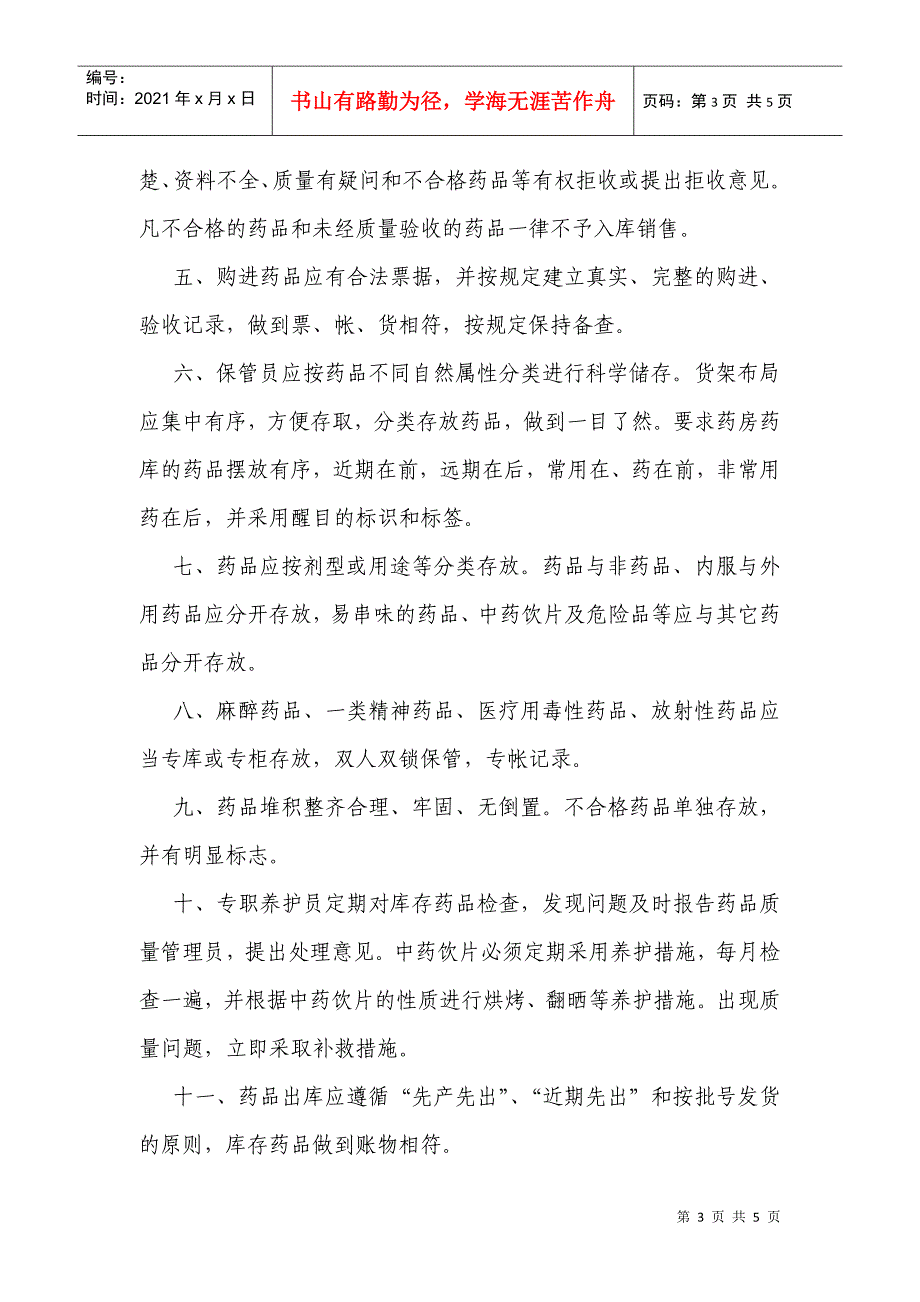 编号：
时间：2021年x月x日
书山有路勤为径，学海无涯苦作舟
页码：第3页 共5页
楚、资料不全、质量有疑问和不合格药品等有权拒收或提出拒收意见。
凡不合格的药品和未经质量验收的药品一律不予入库销售。
五、购进药品应有合法票据，并按规定建立真实、完整的购进、
验收记录，做到票、帐、货相符，按规定保持备查。
六、保管员应按药品不同自然属性分类进行科学储存。货架布局
应集中有序，方便存取，分类存放药品，做到一目了然。要求药房药
库的药品摆放有序，近期在前，远期在后，常用在、药在前，非常用
药在后，并采用醒目的标识和标签。
七、药品应按剂型或用途等分类存放。药品与非药品、内服与外
用药品应分开存放，易串味的药品、中药饮片及危险品等应与其它药
品分开存放。
八、麻醉药品、一类精神药品、医疗用毒性药品、放射性药品应
当专库或专柜存放，双人双锁保管，专帐记录。
九、药品堆积整齐合理、牢固、无倒置。不合格药品单独存放，
并有明显标志。
十、专职养护员定期对库存药品检查，发现问题及时报告药品质
量管理员，提出处理意见。中药饮片必须定期采用养护措施，每月检
查一遍，并根据中药饮片的性质进行烘烤、翻晒等养护措施。出现质
量问题，立即采取补救措施。
十一、药品出库应遵循“先产先出”、“近期先出”和按批号发货
的原则，库存药品做到账物相符。
第 3 页 共 5 页